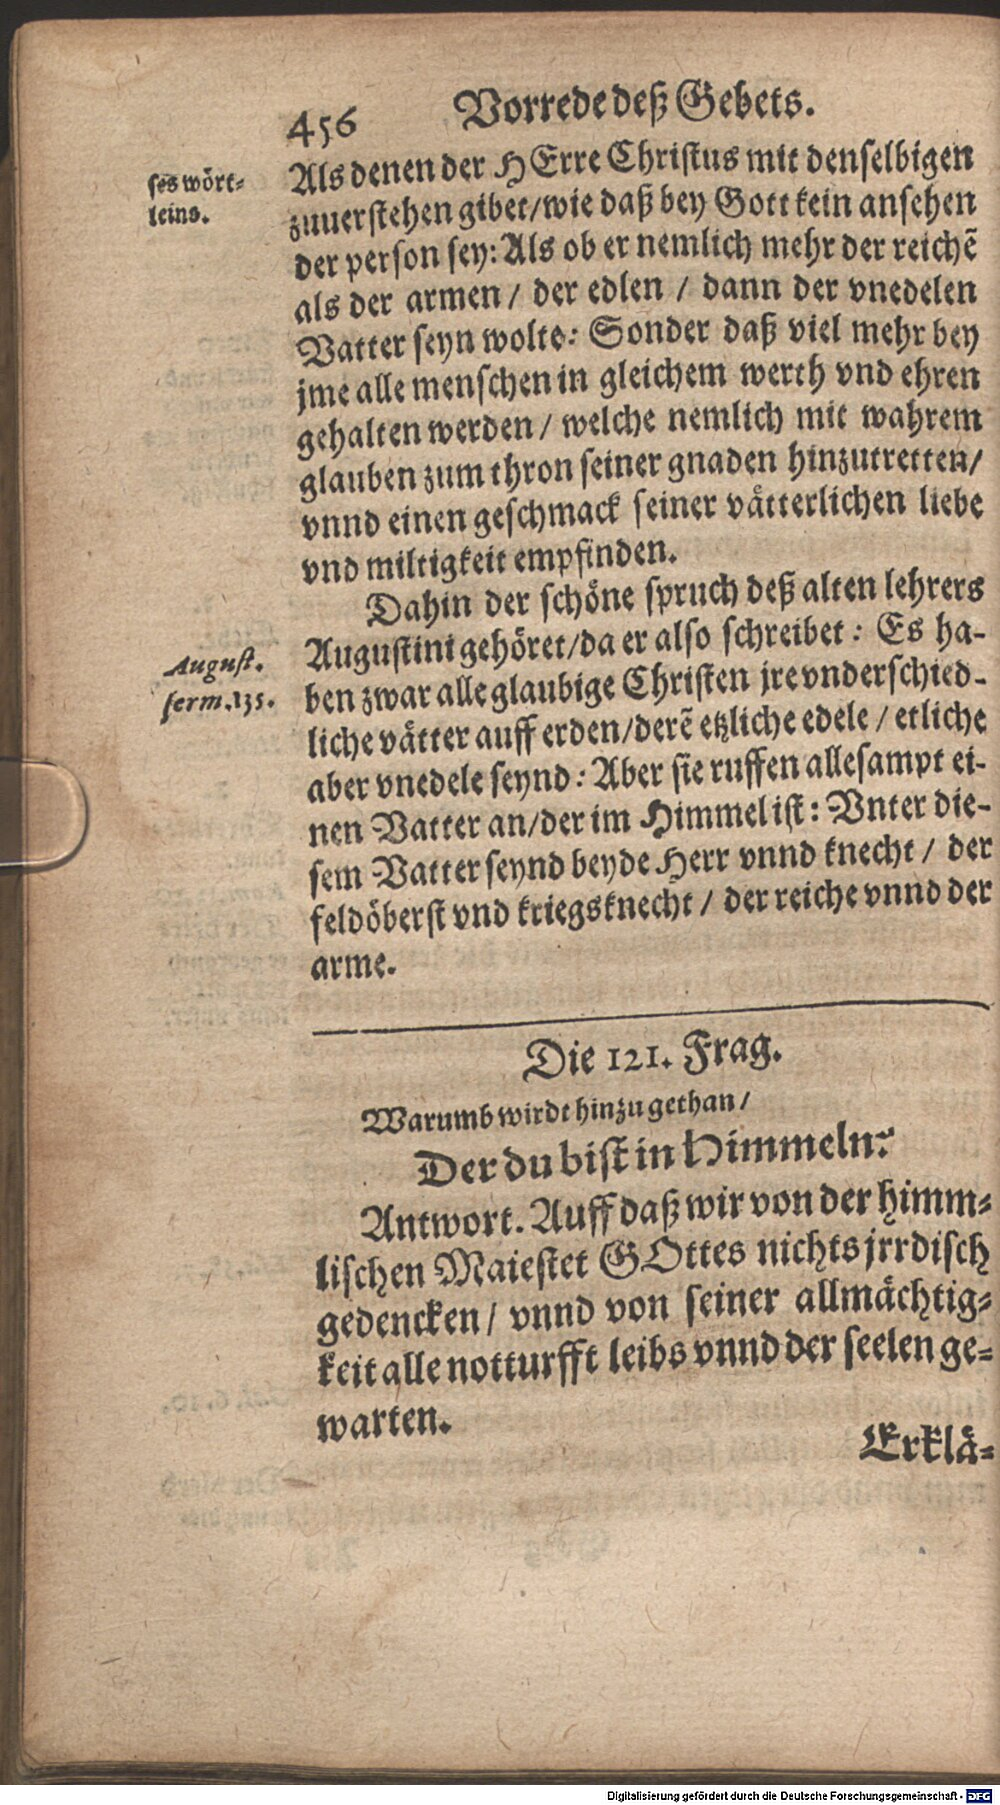 456 Vorrede deß Gebets.
ses wört-
leins.
Als denen der HErre Christus mit denselbigen
zuuerstehen gibet/wie daß bey Gott kein ansehen
der person sey: Als ob er nemlich mehr der reichẽ
als der armen / der edlen / dann der vnedelen
Vatter seyn wolte: Sonder daß viel mehr bey
jme alle menschen in gleichem werth vnd ehren
gehalten werden / welche nemlich mit wahrem
glauben zum thron seiner gnaden hinzutretten/
vnnd einen geschmack seiner vätterlichen liebe
vnd miltigkeit empfinden.
Dahin der schöne spruch deß alten lehrers
Augustini gehöret/da er also schreibet: Es ha-
August.
serm.135.
ben zwar alle glaubige Christen jre vnderschied-
liche vätter auff erden/derẽ etzliche edele / etliche
aber vnedele seynd: Aber sie ruffen allesampt ei-
nen Vatter an/der im Himmel ist: Vnter die-
sem Vatter seynd beyde Herr vnnd knecht / der
feldöberst vnd kriegsknecht / der reiche vnnd der
arme.
Die 121. Frag.
Warumb wirdt hinzu gethan/
Der du bist in Himmeln?
Antwort. Auff daß wir von der himm-
lischen Maiestet GOttes nichts jrrdisch
gedencken/ vnnd von seiner allmächtig-
keit alle notturfft leibs vnnd der seelen ge-
warten.
Erklä-
Digitalisierung gefördert durch die Deutsche Forschungsgemeinschaft - DFG